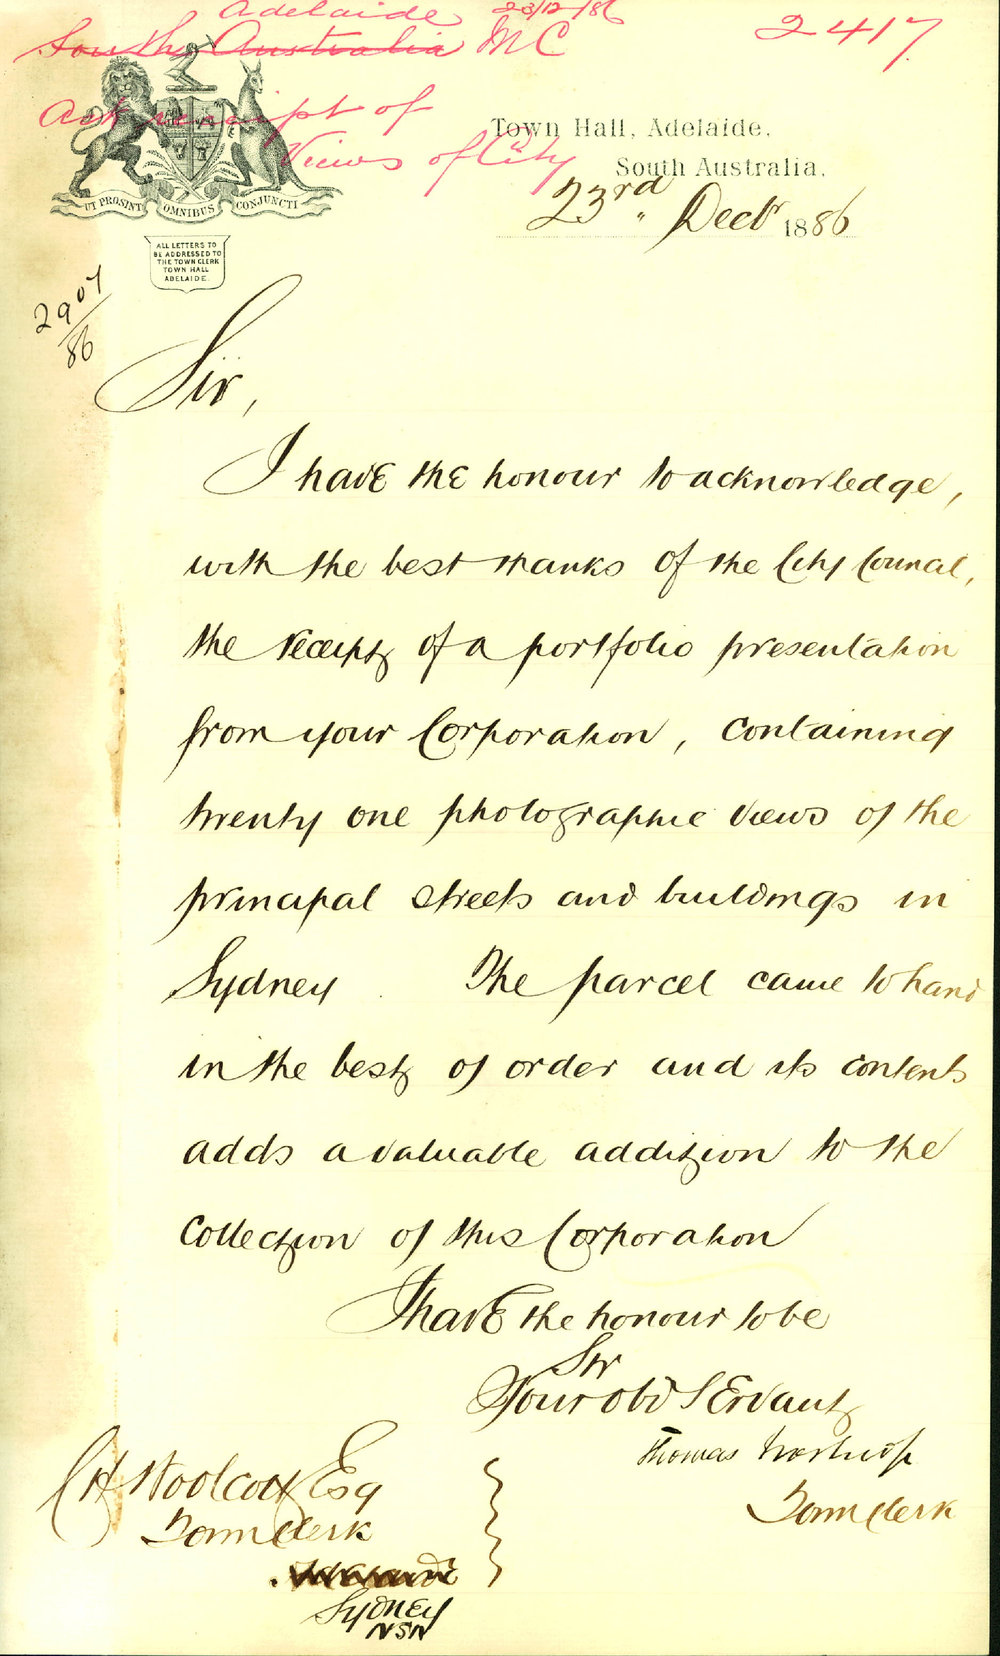 Adelaide 23/12/86
South Australia MC
2417
Ack receipt of
Views of City
UT PROSINT OMNIBUS CONJUNCTI
ALL LETTERS TO
BE ADDRESSED TO
THE TOWN CLERK
TOWN HALL
ADELAIDE.
Town Hall, Adelaide,
South Australia,
23rd Decbr 1886
2907
86
Sir,
I have the honour to acknowledge,
with the best thanks of the City Council,
the receipt of a portfolio presentation
from your Corporation, containing
twenty one photographic views of the
principal streets and buildings in
Sydney. The parcel came to hand
in the best of order and its contents
adds a valuable addition to the
Collection of this Corporation
I have the honour to be
Sir
Your obd Servant
Thomas Worsnop
Town Clerk
C H Woolcott Esq
Town Clerk
Sydney
NSW